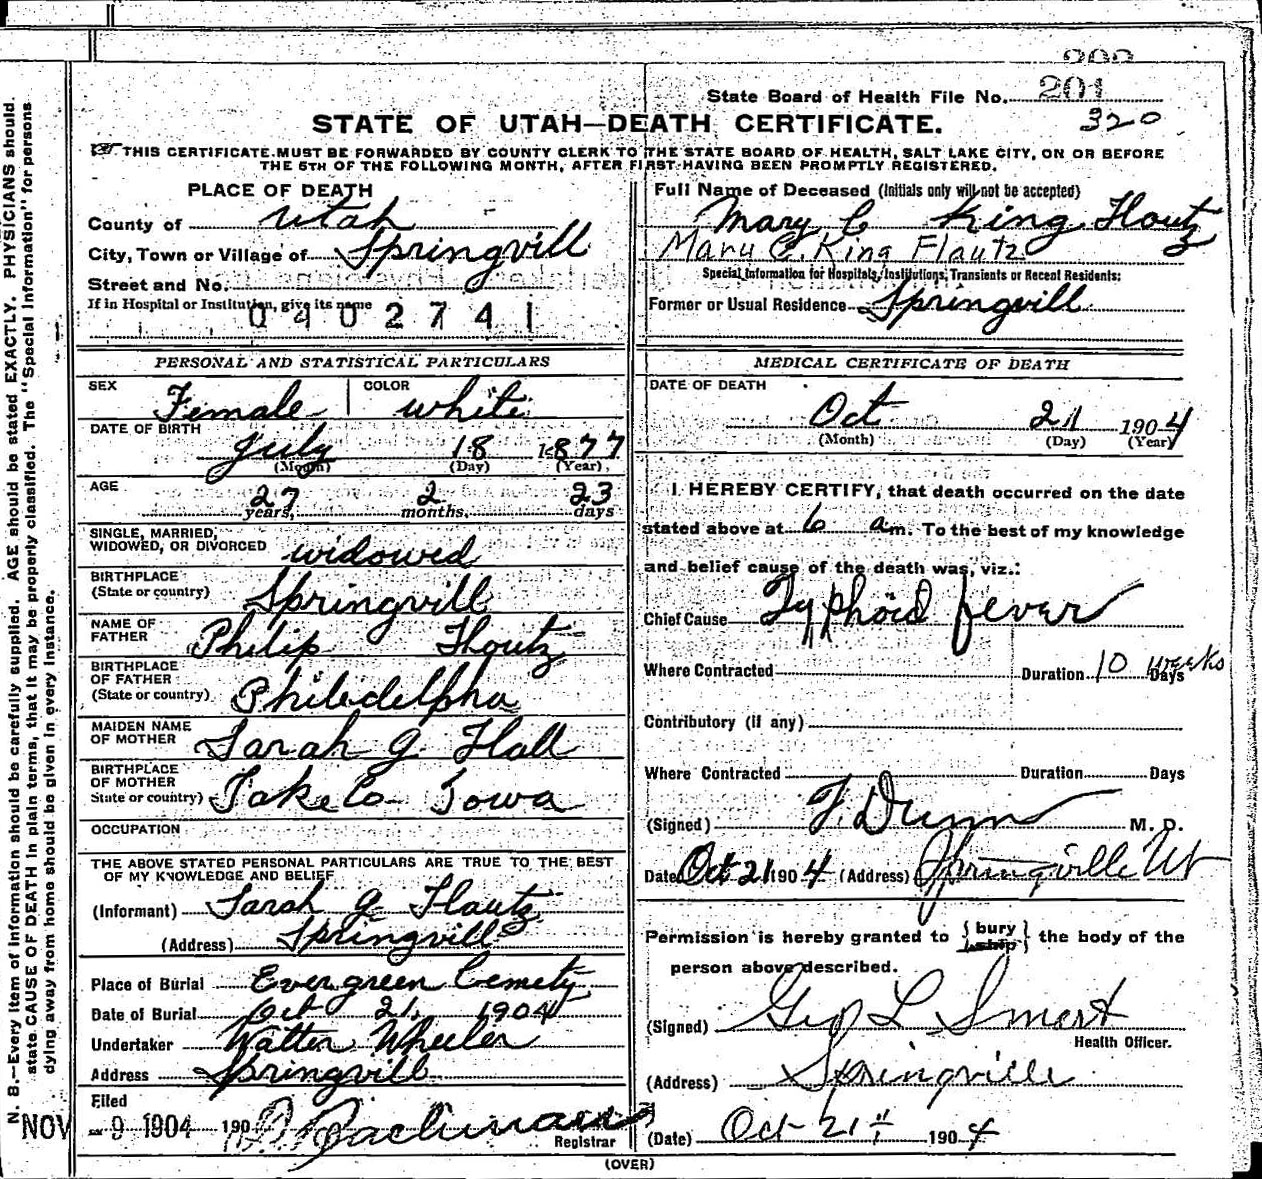 200
State Board of Health File No. 201
320
STATE OF UTAH—DEATH CERTIFICATE.
THIS CERTIFICATE MUST BE FORWARDED BY COUNTY CLERK TO THE STATE BOARD OF HEALTH, SALT LAKE CITY, ON OR BEFORE
THE 5TH OF THE FOLLOWING MONTH, AFTER FIRST HAVING BEEN PROMPTLY REGISTERED.
PLACE OF DEATH
County of Utah
City, Town or Village of Springvill
Street and No.
If in Hospital or Institution, give its name
0402741
Full Name of Deceased (Initials only will not be accepted)
Mary C King Houtz
Mary C. King Flautz
Special Information for Hospitals, Institutions, Transients or Recent Residents:
Former or Usual Residence Springvill
PERSONAL AND STATISTICAL PARTICULARS
SEX Female COLOR white
DATE OF BIRTH July 18 1877
(Month) (Day) (Year)
AGE 27 years, 2 months, 23 days
SINGLE, MARRIED,
WIDOWED, OR DIVORCED widowed
BIRTHPLACE
(State or country) Springvill
NAME OF
FATHER Philip Houtz
BIRTHPLACE
OF FATHER
(State or country) Philidelpha
MAIDEN NAME
OF MOTHER Sarah G Hall
BIRTHPLACE
OF MOTHER
State or country) Co Iowa
OCCUPATION
THE ABOVE STATED PERSONAL PARTICULARS ARE TRUE TO THE BEST
OF MY KNOWLEDGE AND BELIEF
(Informant) Sarah G Hautz
(Address) Springvill
Place of Burial Evergreen Cemety
Date of Burial Oct 21, 1904
Undertaker Walter Wheeler
Address Springvill
Filed
NOV 9 1904 190
Registrar
MEDICAL CERTIFICATE OF DEATH
DATE OF DEATH
Oct 21 1904
(Month) (Day) (Year)
I HEREBY CERTIFY, that death occurred on the date
stated above at 6 am. To the best of my knowledge
and belief cause of the death was, viz.:
Chief Cause Typhoid fever
Where Contracted Duration 10 weeks Days
Contributory (if any)
Where Contracted Duration Days
(Signed) F. Dunn M. D.
Date Oct 21 1904 (Address) Springville Ut
Permission is hereby granted to {bury ship} the body of the
person above described.
(Signed) Geo L Smart
Health Officer.
(Address) Springville
(Date) Oct 21st 1904
(OVER)
N. B.—Every item of information should be carefully supplied. AGE should be stated EXACTLY. PHYSICIANS should
state CAUSE OF DEATH in plain terms, that it may be properly classified. The "Special Information" for persons
dying away from home should be given in every instance.